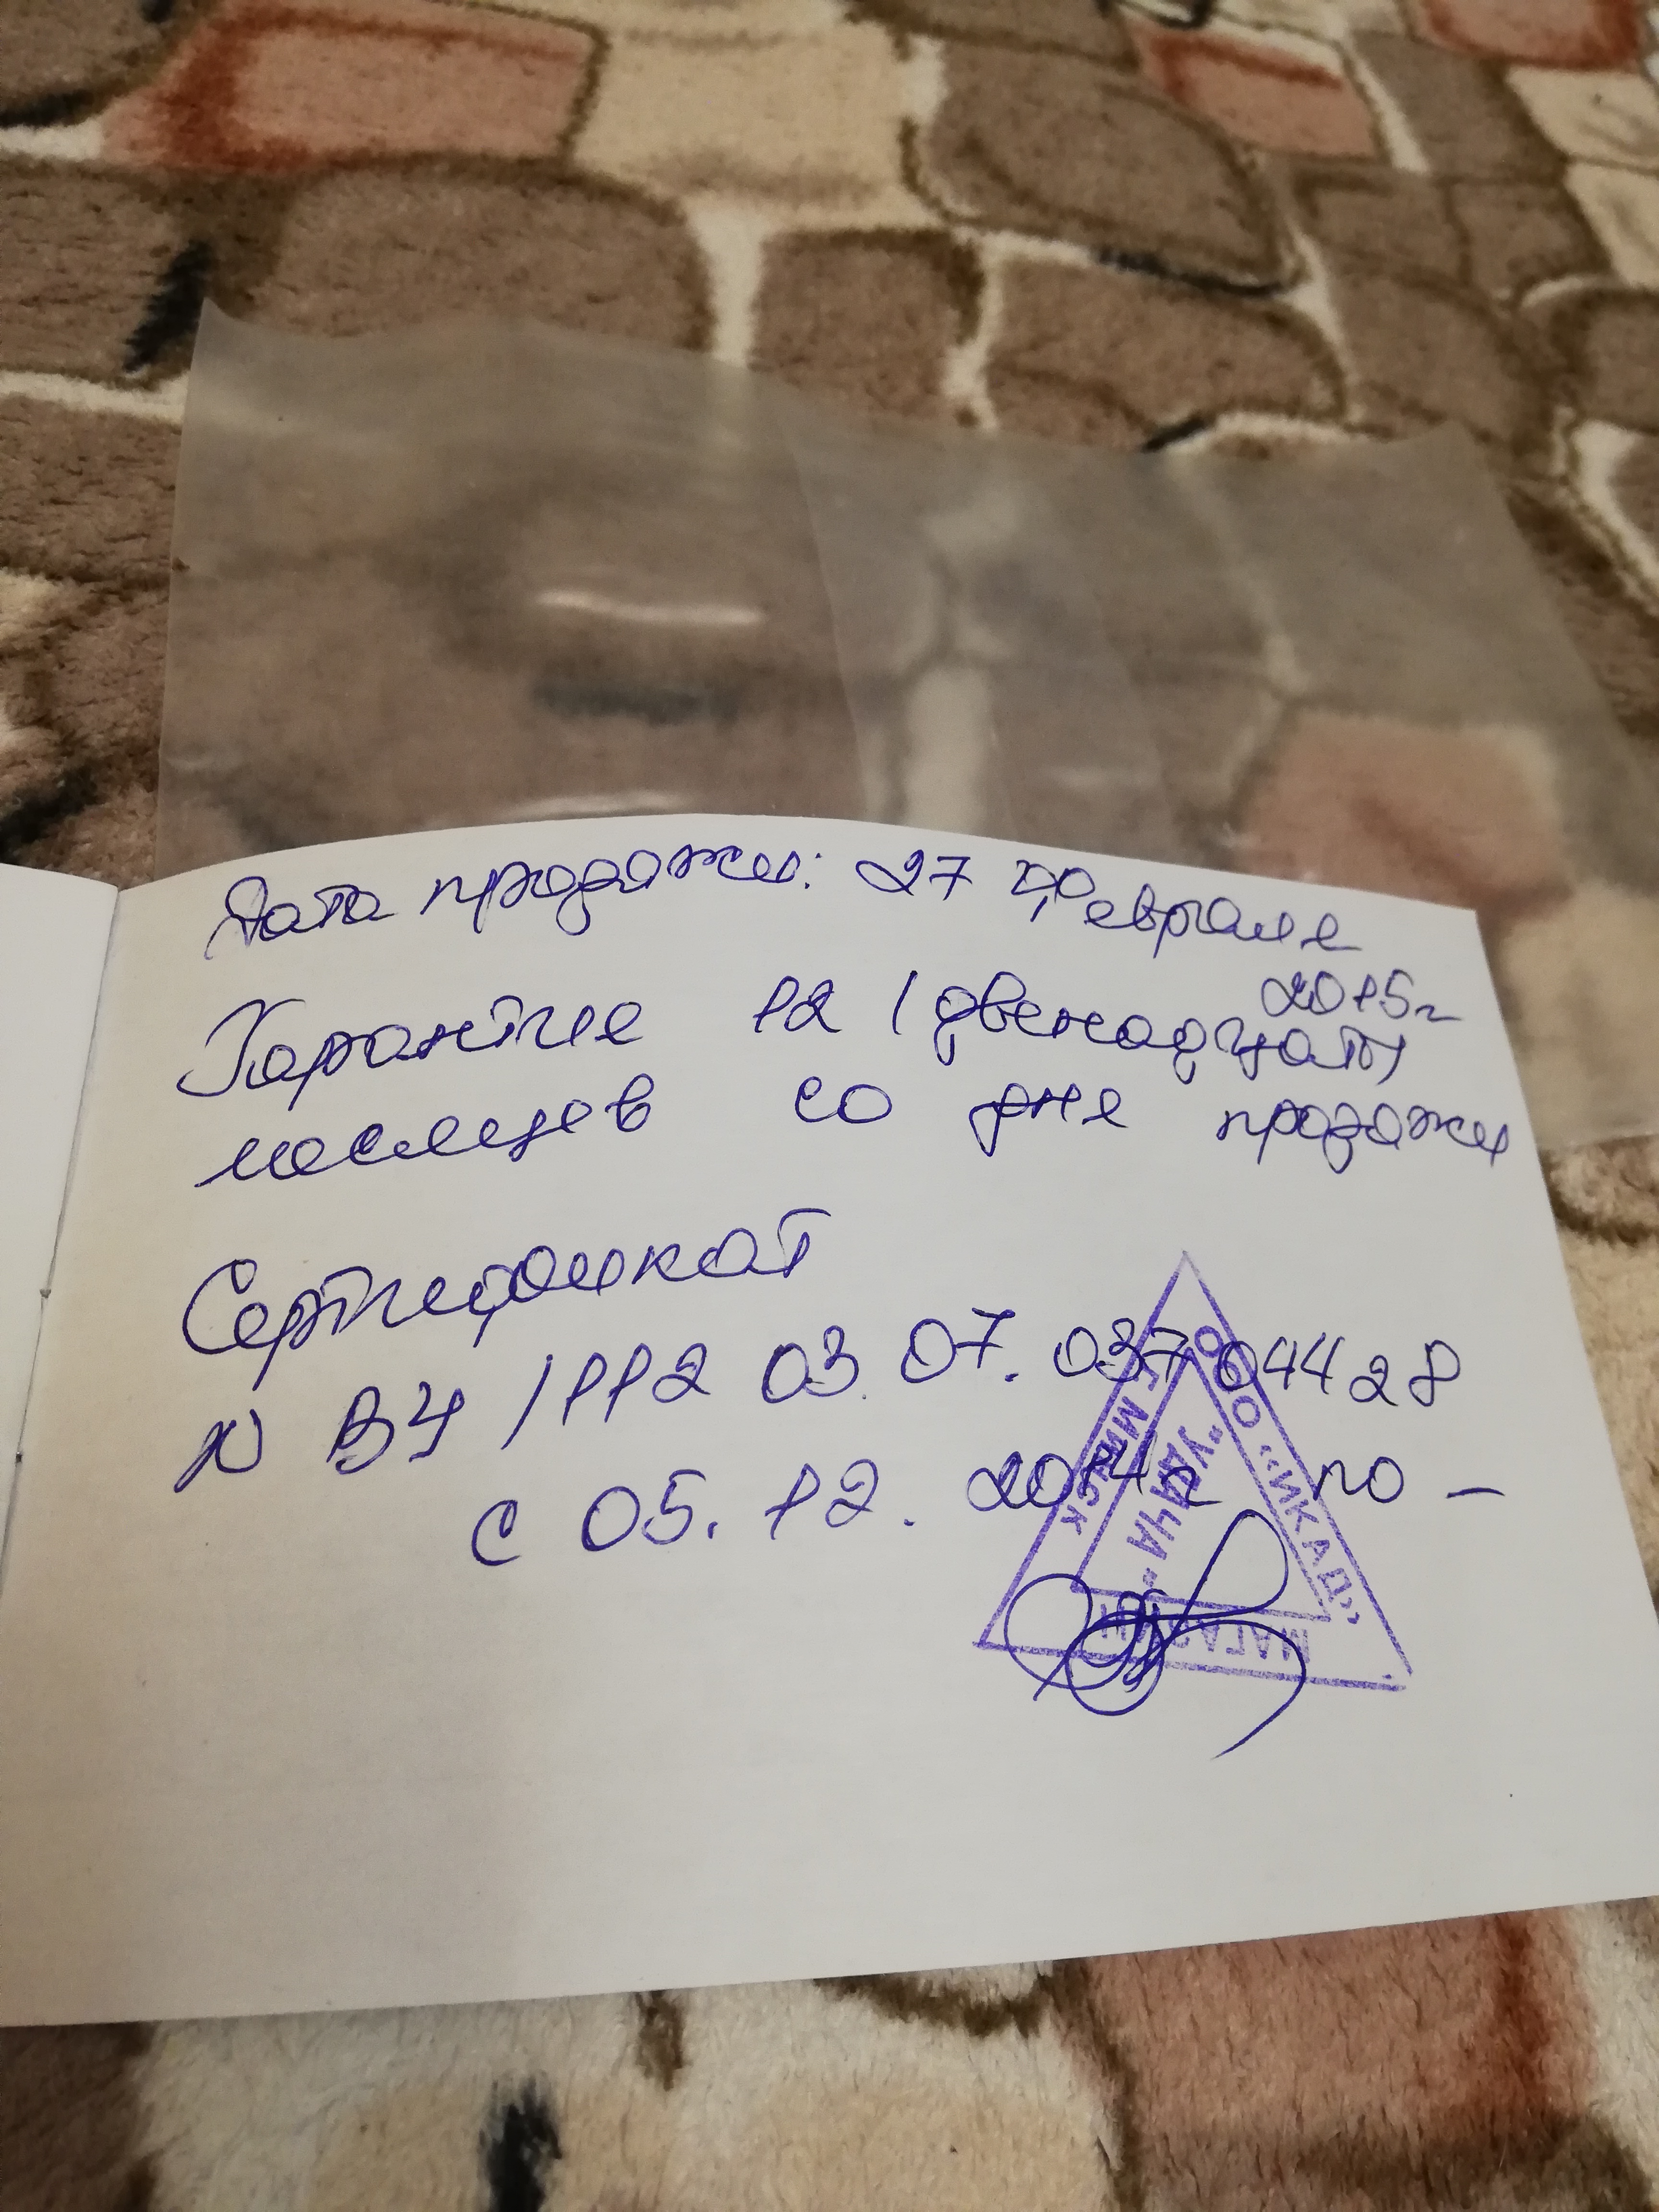 Дата продажи: 27 Февраля
2015г
Гарантия 12 (двенадцать)
месяцев со дня продажи
Сертификат
N ВЧ/112 03. 07. 037 04428
с 05. 12. 2014г по –
ООО «ИКАД»
Г. МИНСК
"УДАЧА"
МАГАЗИН